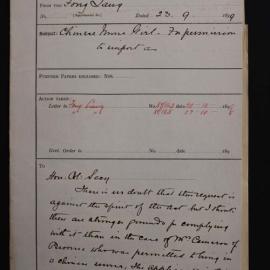 FROM THE Fong Sang
No. (Department &c.) Dated 23. 9 1899
Subject: Chinese Nurse Girl – For permission
to import a
FURTHER PAPERS ENCLOSED: Nos.
ACTION TAKEN.
Letter to Fong Sang No. date 189
Govt. Order to No. date 189
To
Hon: Col: Secy
There is no doubt that this request is
against the spirit of the act but I think
there are stronger grounds for complying
with it than in the case of Mrs Cameron of
Broome who was permitted to bring in
a chinese servant. The